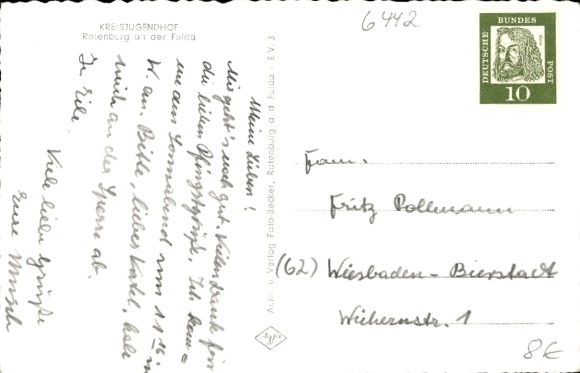 KREISJUGENDHOF
Rotenburg an der Fulda
Meine Lieben!
Mir geht's noch gut. Vielen Dank für
die lieben Pfingstgrüße. Ich kom=
me am Sonnabend um 11 16 in
W. an. Bitte, lieber Vater, hole
mich an der Sperre ab.
In Eile
Viele liebe Grüße
Eure
Aufn. u. Verlag Foto-Becker, Rotenburg a. d. Fulda - E.V. 5
Agfa
6442
DEUTSCHE BUNDES POST
10
Fam.
Fritz Pollmann
(62) Wiesbaden-Bierstadt
Wichernstr. 1
8€